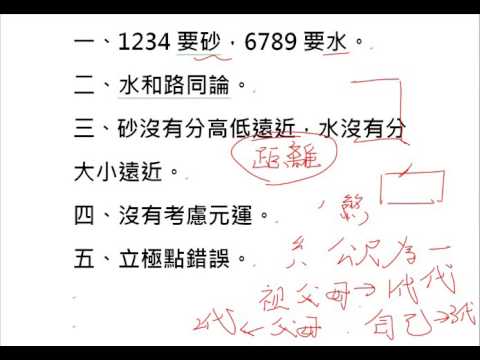 一、1234 要砂，6789 要水。
二、水和路同論。
三、砂沒有分高低遠近，水沒有分
大小遠近。
距離
四、沒有考慮元運。
公尺為一
五、立極點錯誤。
祖父母→1代代
2代←父母 自己→3代